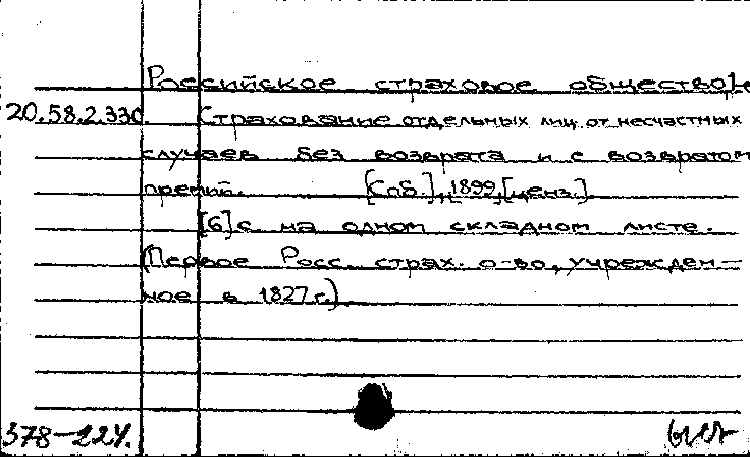 Российское страховое общество].
20.58.2.330. Страхование отдельных лиц от несчастных
случаев без возврата и с возвратом
премий. [Спб.], 1899, [ценз.]
[6] с на одном складном листе.
(Первое Росс. страх. о-во, учрежден-
ное в 1827 г.)
378-224.